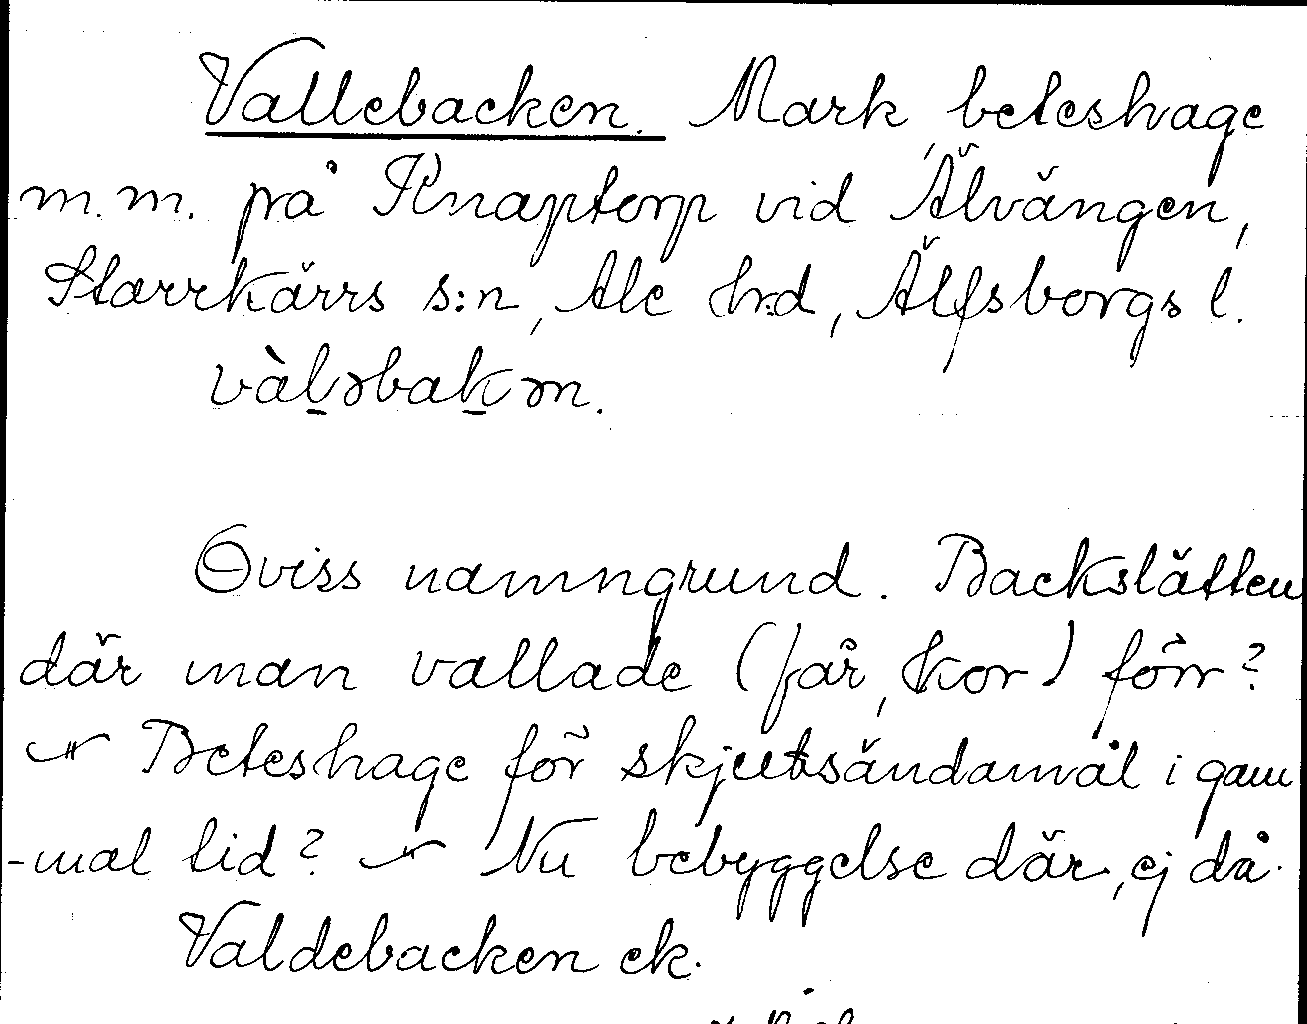 Vallebacken. Mark, beteshage
m.m. på Knaptorp vid Älvängen,
Starrkärrs s:n, Ale hrd, Älfsborgs l.
vàl̠əbak̠ən.
Oviss namngrund. Backslätten
där man vallade (får, kor) förr?
-"- Beteshage för skjutsändamål i gam
-mal tid? -"- Nu bebyggelse där, ej då.
Valdebacken ek.